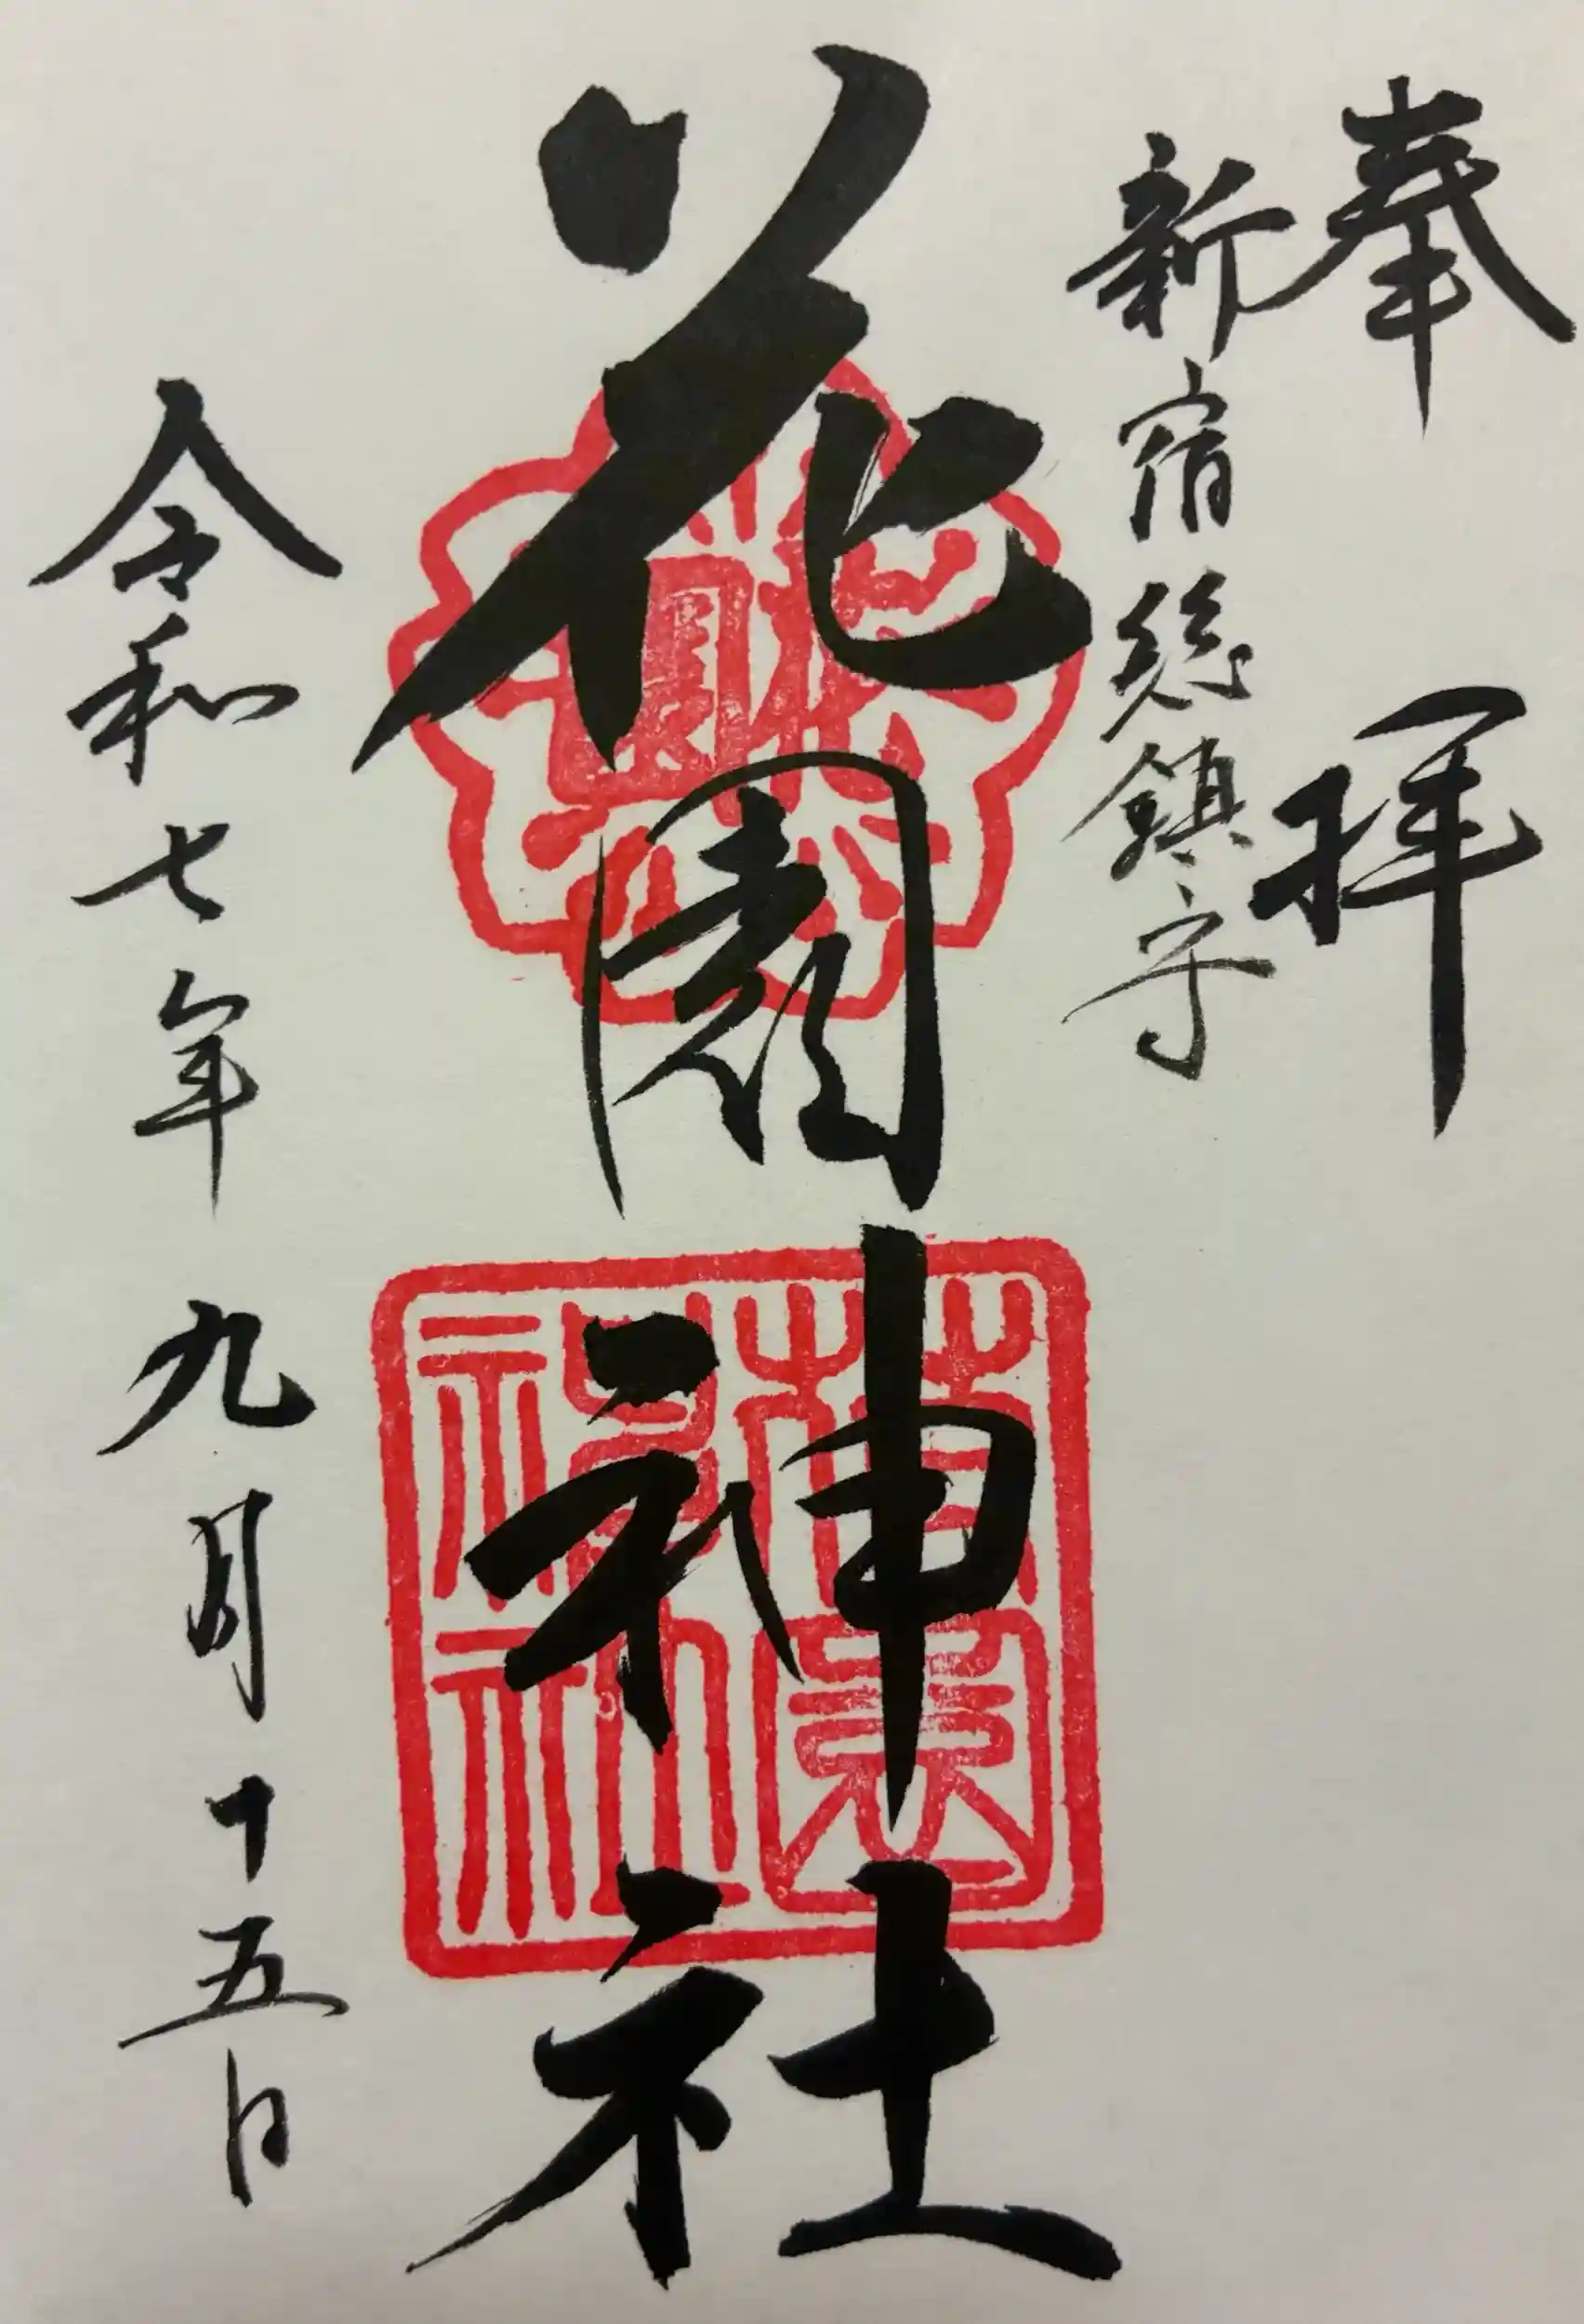 奉拝
新宿総鎮守
花園神社
令和七年九月十五日
花園神社